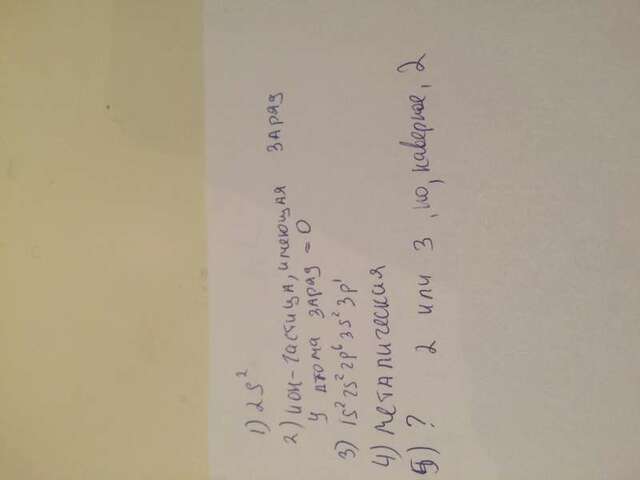 1) 2S²
2) ион-частица, имеющая заряд
у атома заряд = 0
3) 1S² 2S² 2p⁶ 3S² 3p¹
4) металическия
5) ? 2 или 3, но, наверное, 2